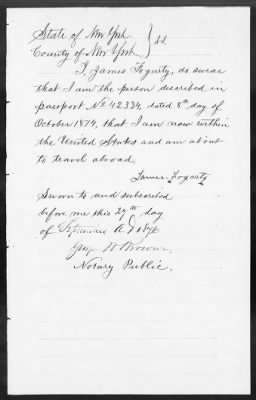 State of New York
County of New York } S.S.
I, James Fogarty, do swear
that I am the person described in
passport No. 42334, dated 8th day of
October 1874, that I am now within
the United States and am about
to travel abroad.
James Fogarty
Sworn to and subscribed
before me this 29th day
of A.D.
Geo. W. Brown
Notary Public.